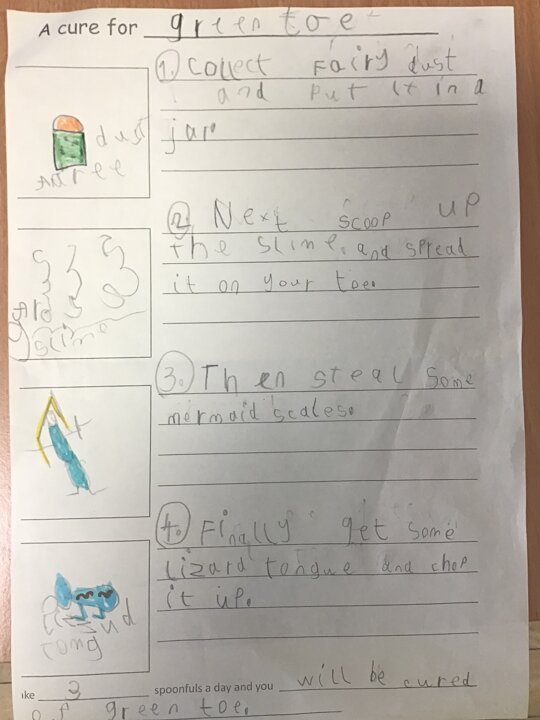 A cure for green toe
1. Collect Fairy dust
and put it in a
jar
dust
2. Next scoop up
the slime. and spread
it on your toe.
slime
3. Then steal some
mermaid scales.
4. Finally get some
lizard tongue and chop
it up.
ke 3 spoonfuls a day and you will be cured
of green toe.